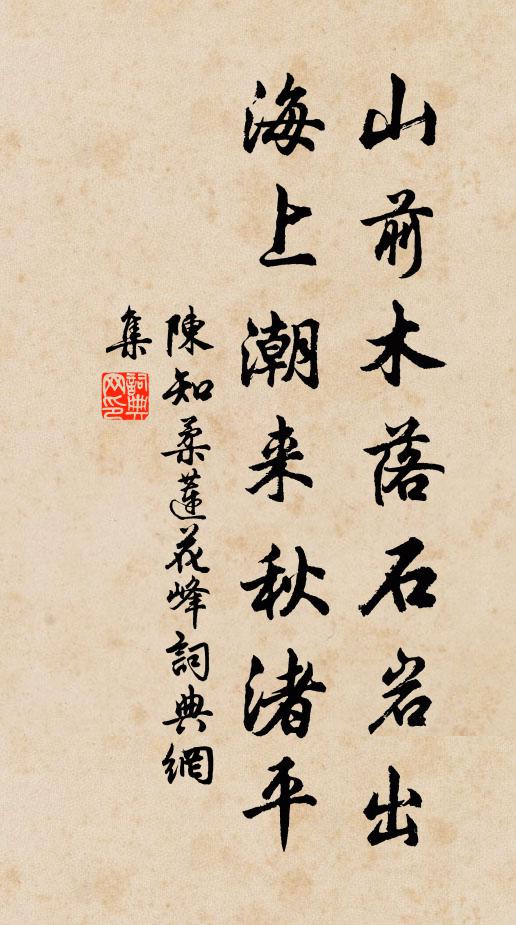 山前木落石岩出
海上潮来秋渚平
陳知柔蓮花峰詞典網
集
詞典
网印